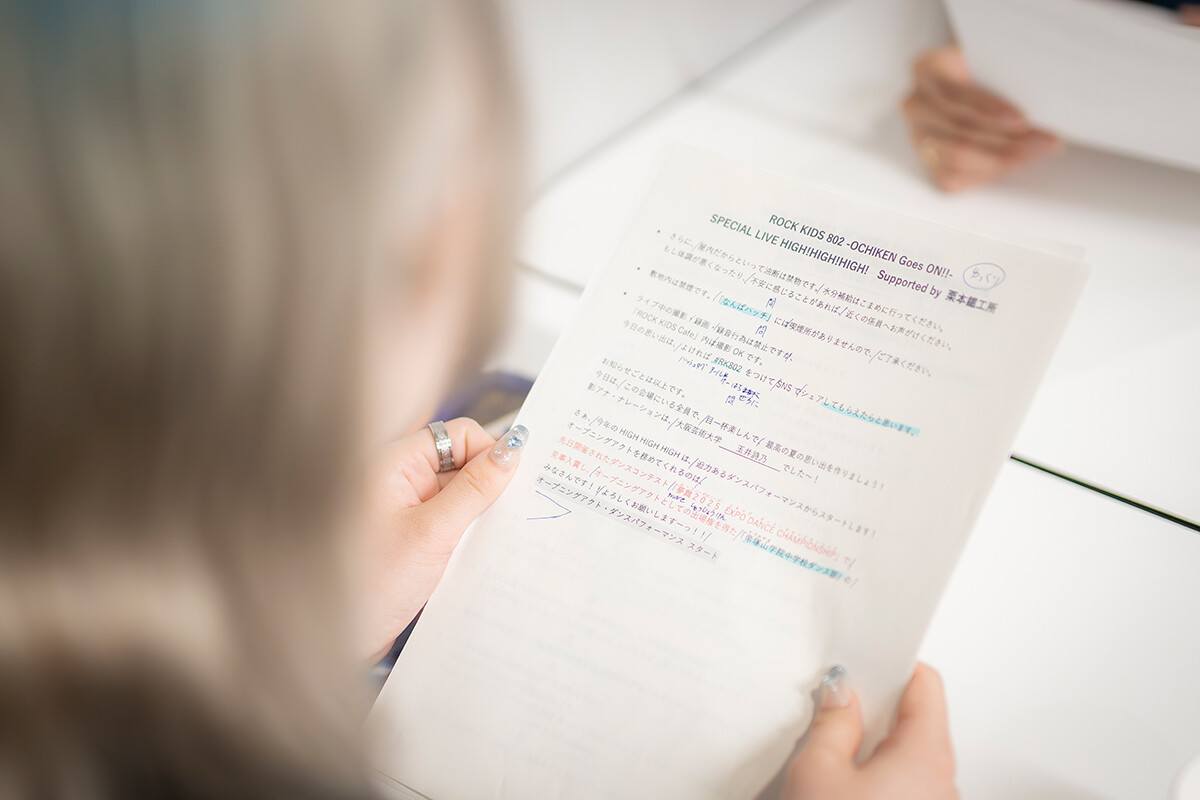 ROCK KIDS 802 -OCHIKEN Goes ON!!-
SPECIAL LIVE HIGH!HIGH!HIGH! Supported by 栗本鐵工所
ゆっくり
• さらに、/屋内だからといって油断は禁物です。/水分補給はこまめに行ってください。
もし体調が悪くなったり、/不安に感じることがあれば、/近くの係員へお声がけください。
間
• 敷地内は禁煙です。/「なんばハッチ」には喫煙所がありませんので、/ご了承ください。
間
• ライブ中の撮影/録画/録音行為は禁止ですが、
「ROCK KIDS Cafe」内は撮影 OK です。
今日の思い出は、/よければ #RK802 をつけて/SNS でシェアしてもらえたらと思います。
ハッシュタグ
間
お知らせごとは以上です。
今日は、/この会場にいる全員で、/目一杯楽しんで/最高の夏の思い出を作りましょう!
影アナ・ナレーションは、/大阪芸術大学 玉井詩乃 でした~!
さぁ、/今年の HIGH HIGH HIGH は、/迫力あるダンスパフォーマンスからスタートします!
オープニングアクトを務めてくれるのは/
先日開催されたダンスコンテスト/「 2025 EXPO DANCE CHAMPIONSHIP」で/
見事入賞し、/オープニングアクトとしての出場権を得た/「帝塚山学院中学校ダンス部」の/
みなさんです!!/よろしくお願いしまーっ!!/
オープニングアクト・ダンスパフォーマンス スタート